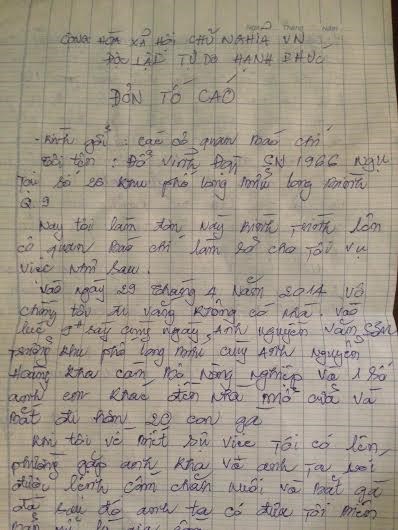 Ngày Tháng Năm
CỘNG HÒA XÃ HỘI CHŨ NGHĨA VN
ĐỘC LẬP TỰ DO HẠNH PHÚC
ĐƠN TỐ CÁO
- Kính gởi : các cơ quan báo chí
Tôi tên : Đỗ Vinh SN 1966 Ngụ
Tại số 26 khu phố long long bình
Q 9
Nay tôi làm đơn này kính trình lên
cơ quan báo chí làm rỏ cho tôi vụ
việc như sau.
Vào ngày 29 tháng 4 năm 2014 vợ
chồng tôi đi vắng không có nhà. vào
lúc cùng ngày, Anh nguyễn văn Sơn
trưởng khu phố long cùng Anh nguyễn
Hoàng kha cán bộ nông nghiệp và 1 số
anh em khác đến nhà mở cửa và
bắt đi hơn 20 con gà
khi tôi về biết sự việc tôi có lên
phường gặp anh kha và anh ta nói
được lệnh cấm chăn nuôi và bắt gà
đó sau đó anh ta có đưa tôi